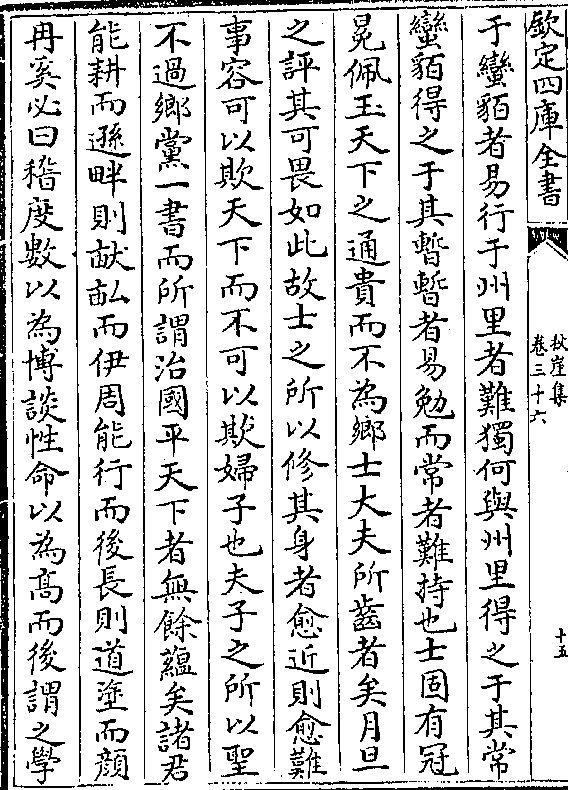 欽定四庫全書
秋崖集
卷三十六
十五
于蠻貊者易行于州里者難獨何與州里得之于其常
蠻貊得之于其暫暫者易勉而常者難持也士固有冠
冕佩玉天下之通貴而不為鄉士大夫所齒者矣月旦
之評其可畏如此故士之所以修其身者愈近則愈難
事容可以欺天下而不可以欺婦子也夫子之所以聖
不過鄉黨一書而所謂治國平天下者無餘蘊矣諸君
能耕而遜畔則畎畝而伊周能行而後長則道塗而顔
冉奚必曰稽度數以為博談性命以為髙而後謂之學